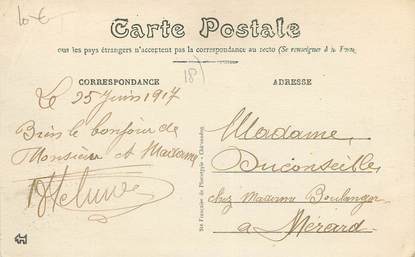 10 €
Carte Postale
ous les pays étrangers n'acceptent pas la correspondance au recto (Se renseigner à la Poste
CORRESPONDANCE
18)
ADRESSE
Le 25 Juin 1917
Bien le bonjour de
Monsieur et Madame
Madame
Duconseille
chez Madame Boulanger
a Mérard
Sté Française de Phototypie - Châteaudun